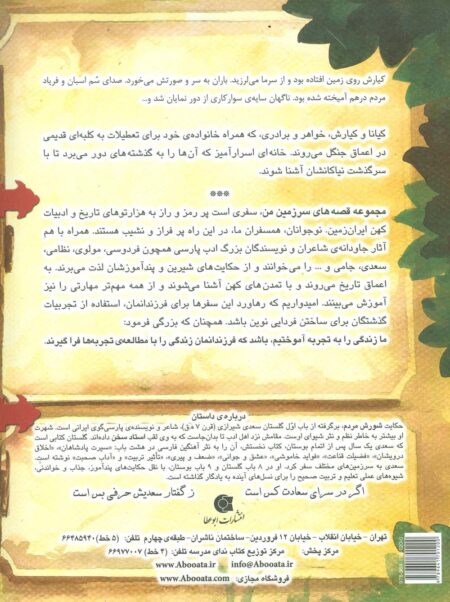 کیارش روی زمین افتاده بود و از سرما می‌لرزید. باران به سر و صورتش می‌خورد. صدای سُم اسبان و فریاد
مردم درهم آمیخته شده بود. ناگهان سایه‌ی سوارکاری از دور نمایان شد و...
کیانا و کیارش، خواهر و برادری، که همراه خانواده‌ی خود برای تعطیلات به کلبه‌ای قدیمی
در اعماق جنگل می‌روند. خانه‌ای اسرارآمیز که آن‌ها را به گذشته‌های دور می‌برد تا با
سرگذشت نیاکانشان آشنا شوند.
***
مجموعه قصه‌های سرزمین من، سفری است پر رمز و راز به هزارتوهای تاریخ و ادبیات
کهن ایران‌زمین. نوجوانان، همسفران ما، در این راه پر فراز و نشیب هستند. همراه با هم
آثار جاودانه‌ی شاعران و نویسندگان بزرگ ادب پارسی همچون فردوسی، مولوی، نظامی،
سعدی، جامی و ... را می‌خوانند و از حکایت‌های شیرین و پندآموزشان لذت می‌برند. به
اعماق تاریخ می‌روند و با تمدن‌های کهن آشنا می‌شوند و از همه مهم‌تر مهارتی را نیز
آموزش می‌بینند. امیدواریم که رهاورد این سفرها برای فرزندانمان، استفاده از تجربیات
گذشتگان برای ساختن فردایی نوین باشد. همچنان که بزرگی فرمود:
ما زندگی را به تجربه آموختیم، باشد که فرزندانمان زندگی را با مطالعه‌ی تجربه‌ها فرا گیرند.
درباره‌ی داستان
حکایت شورش مردم، برگرفته از باب اوّل گلستان سعدی شیرازی (قرن ۷ ه.ق)، شاعر و نویسنده‌ی پارسی‌گوی ایرانی است. شهرت
او بیشتر به خاطر نظم و نثر شیوای اوست. مقامش نزد اهل ادب تا بدان‌جاست که به وی لقب استاد سخن داده‌اند. گلستان کتابی است
که سعدی یک سال پس از اتمام بوستان، کتاب نخستش، آن را به نثر آهنگین فارسی در هشت باب، «سیرت پادشاهان»، «اخلاق
درویشان»، «فضیلت قناعت»، «فواید خاموشی»، «عشق و جوانی»، «ضعف و پیری»، «تأثیر تربیت» و «آداب صحبت» نوشته است.
سعدی به سرزمین‌های مختلف سفر کرد. او در ۸ باب گلستان و ۹ باب بوستان، با نقل حکایت‌های پندآموز، جذاب و خواندنی،
شیوه‌های عملی تعلیم و تربیت صحیح را برای نسل‌های آینده به یادگار گذاشته است.
اگر در سرای سعادت کس است ز گفتار سعدیش حرفی بس است
انتشارات ابوعطا
تهران - خیابان انقلاب - خیابان ۱۲ فروردین - ساختمان ناشران - طبقه‌ی چهارم تلفن: (۵ خط) ۶۶۴۸۵۹۴۰
مرکز پخش: مرکز توزیع کتاب ندای مدرسه تلفن: (۴ خط) ۶۶۹۷۷۰۰۷
www.Abooata.ir info@Abooata.ir
فروشگاه مجازی: www.Abooata.com